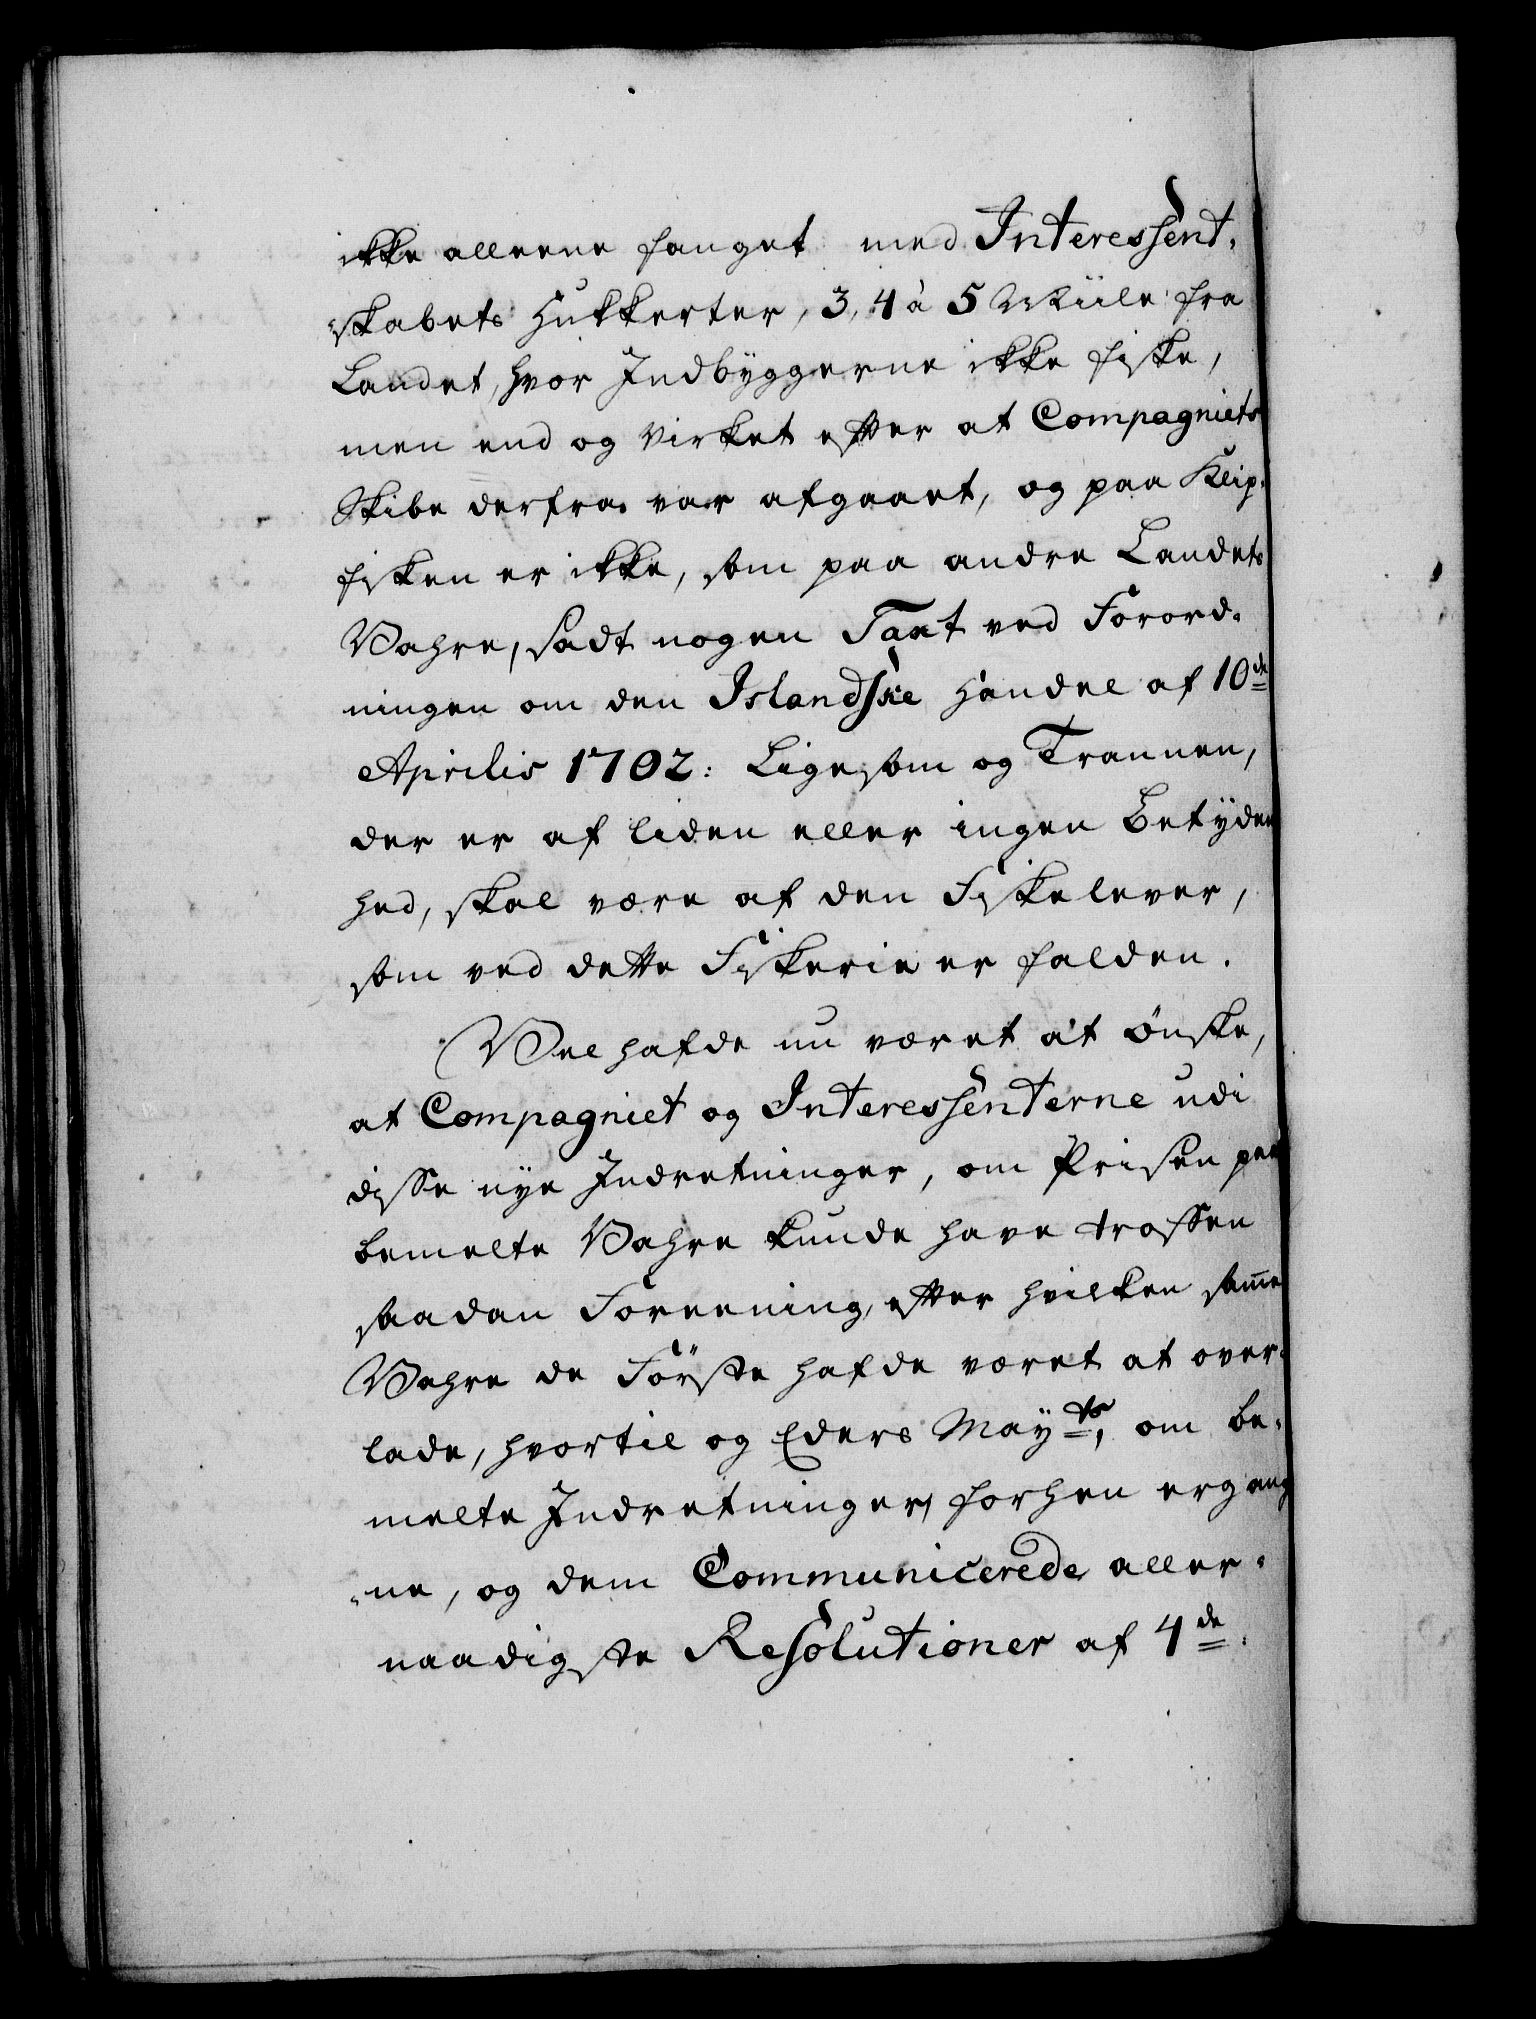 ikke alleene fanget med Interessent,
skabets Hukkerter, 3, 4 à 5 Miile fra
Landet, hvor Indbyggerne ikke fiske,
men end og virket efter at Compagniets
Skibe derfra var afgaaet, og paa Klip,
fisken er ikke, som paa andre Landets
Vahre, sadt nogen Taxt ved Forord,
ningen om den Islandske Handel af 10de
Aprilis 1702: Ligesom og Trannen,
der er af liden eller ingen Betyden
hed, skal være af den Fiskelever,
som ved dette Fiskerie er falden.
Vel hafde nu været at ønske,
at Compagniet og Interessenterne udi
disse nye Indretninger, om Prisen paa
bemelte Vahre kunde have troffen
saadan Foreening, efter hvilken samme
Vahre de Første hafde været at over,
lade, hvortil og Eders Mayts, om be,
melte Indretninger, forhen ergang
,ne, og dem Communicerede aller,
naadigste Resolutioner af 4de